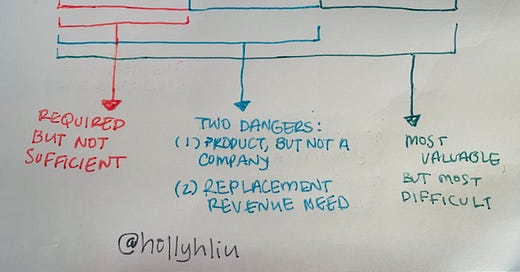 REQUIRED
BUT NOT
SUFFICIENT
TWO DANGERS:
(1) PRODUCT, BUT NOT A
COMPANY
(2) REPLACEMENT
REVENUE NEED
MOST
VALUABLE,
BUT MOST
DIFFICULT
@hollyhliu